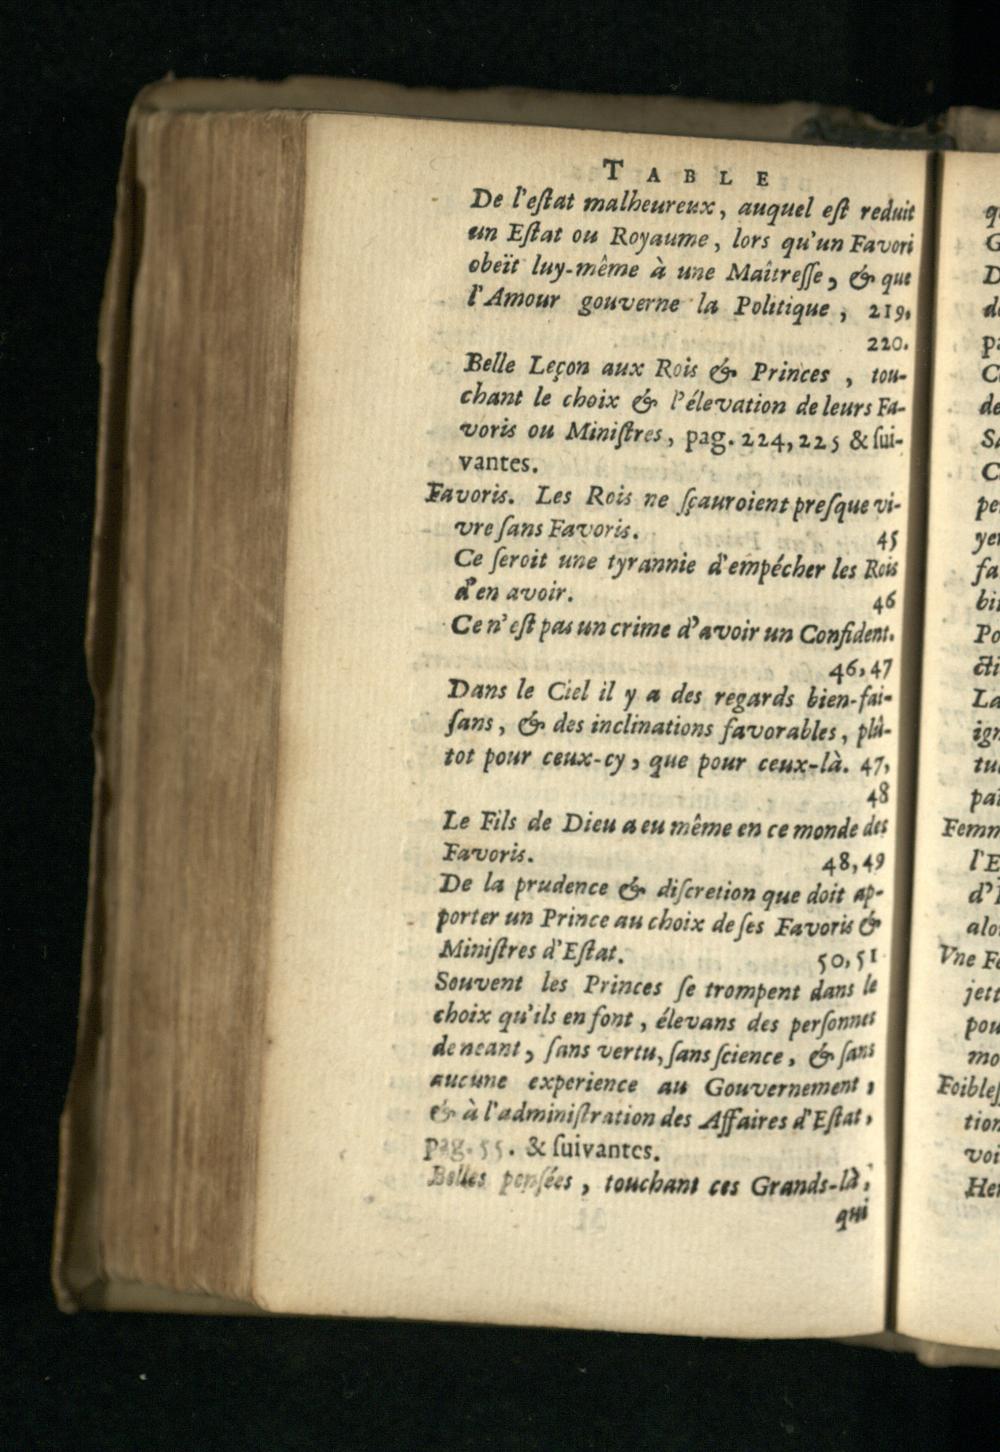 TABLE
De l'eſtat malheureux, auquel eſt reduit
un Eſtat ou Royaume, lors qu'un Favori
obeït luy-même à une Maîtreſſe, & que
l'Amour gouverne la Politique, 219,
220.
Belle Leçon aux Rois & Princes, tou-
chant le choix & l'élevation de leurs Fa-
voris ou Miniſtres, pag. 224, 225 & ſui-
vantes.
Favoris. Les Rois ne ſçauroient preſque vi-
vre ſans Favoris. 45
Ce ſeroit une tyrannie d'empécher les Rois
d'en avoir. 46
Ce n'eſt pas un crime d'avoir un Confident.
46, 47
Dans le Ciel il y a des regards bien-fai-
ſans, & des inclinations favorables, plû-
tot pour ceux-cy, que pour ceux-là. 47,
48
Le Fils de Dieu a eu même en ce monde des
Favoris. 48, 49
De la prudence & diſcretion que doit ap-
porter un Prince au choix de ſes Favoris &
Miniſtres d'Eſtat. 50, 51
Souvent les Princes ſe trompent dans le
choix qu'ils en font, élevans des perſonnes
de neant, ſans vertu, ſans ſcience, & ſans
aucune experience au Gouvernement,
& à l'adminiſtration des Affaires d'Eſtat,
pag. 55. & ſuivantes.
Belles penſées, touchant ces Grands-là,
qui